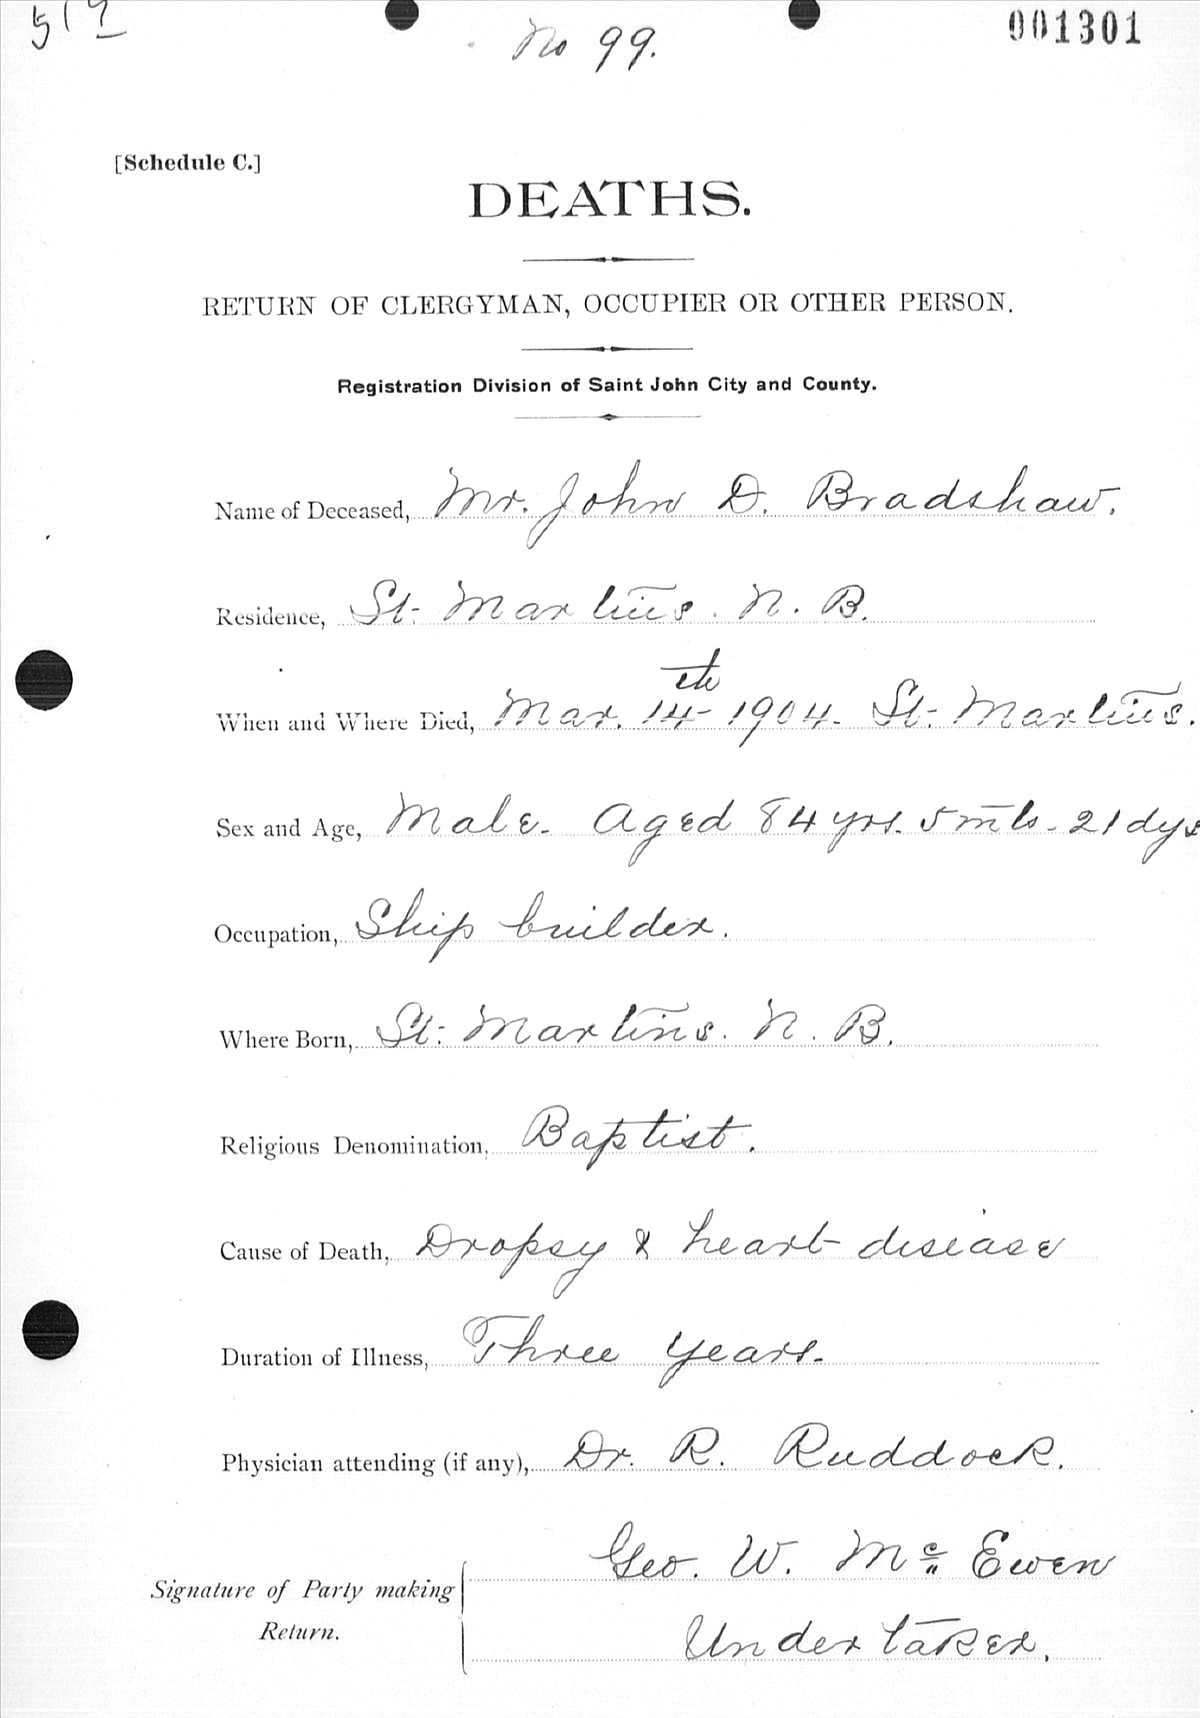 No 99.
001301
[Schedule C.]
DEATHS.
RETURN OF CLERGYMAN, OCCUPIER OR OTHER PERSON.
Registration Division of Saint John City and County.
Name of Deceased, Mr. John D. Bradshaw.
Residence, St. Martins. N. B.
When and Where Died, Mar. 14th 1904. St. Martins.
Sex and Age, Male. Aged 84 yrs. 5 mts. 21 dys
Occupation, Ship builder.
Where Born, St. Martins. N. B.
Religious Denomination, Baptist.
Cause of Death, Dropsy & heart disease
Duration of Illness, Three years.
Physician attending (if any), Dr. R. Ruddock.
Geo. W. Mc Ewen
Signature of Party making
Return.
Undertaker.